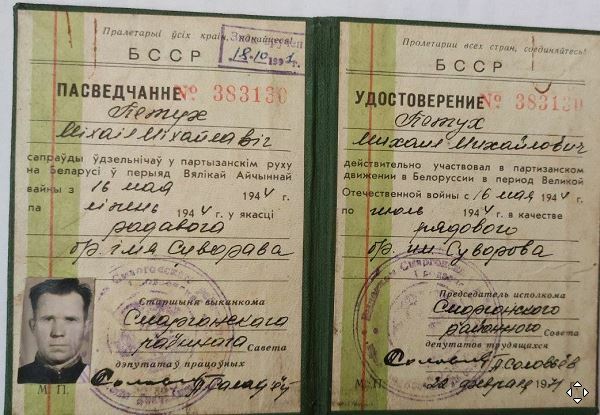 Пралетарыі ўсіх краін, яднайцеся!
БССР
18.10.1991 г.
ПАСВЕДЧАННЕ № 383130
Петух
Міхаіл Міхайлавіч
сапраўды ўдзельнічаў у партызанскім руху
на Беларусі ў перыяд Вялікай Айчыннай
вайны з 16 мая 1944 г.
па ліпень 1944 г. у якасці
радавога
бр. імя Суворава
Старшыня выканкома
Смаргонскага
раённага Савета
дэпутатаў працоўных
М. П.
Пролетарии всех стран, соединяйтесь!
БССР
УДОСТОВЕРЕНИЕ № 383130
Петух
Михаил Михайлович
действительно участвовал в партизанском
движении в Белоруссии в период Великой
Отечественной войны с 16 мая 1944 г.
по июль 1944 г. в качестве
рядового
бр. им Суворова
Председатель исполкома
Сморгонского
районного Совета
депутатов трудящихся
П. Соловьёв
М. П. 22 февраля 1971